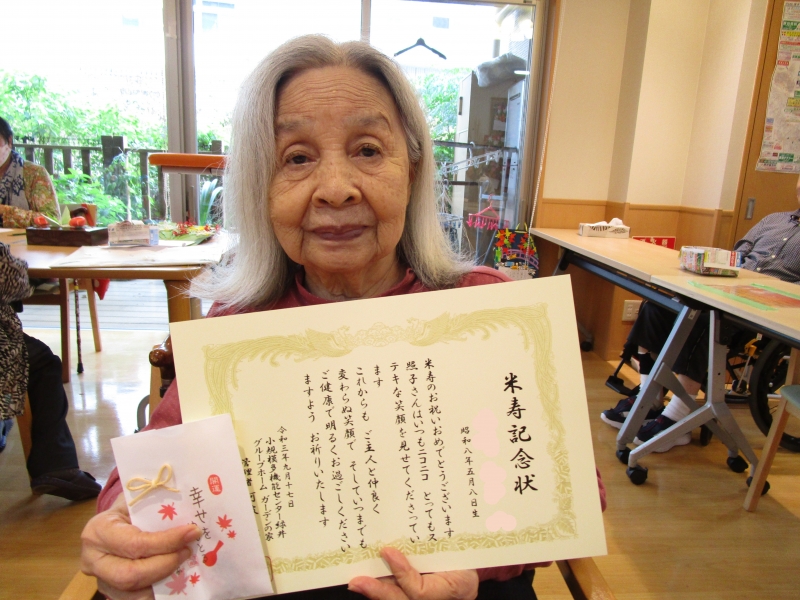 米寿記念状
昭和八年五月八日生
米寿のお祝いおめでとうございます
照子さんはいつもニコニコ とってもス
テキな笑顔を見せてくださってい
ます
これからも ご主人と仲良く
変わらぬ笑顔で そしていつまでも
ご健康で明るくお過ごしください
ますよう お祈りいたします
令和三年九月十七日
小規模多機能センター緑井
グループホーム ガーデンの家
管理者
開運
幸せを